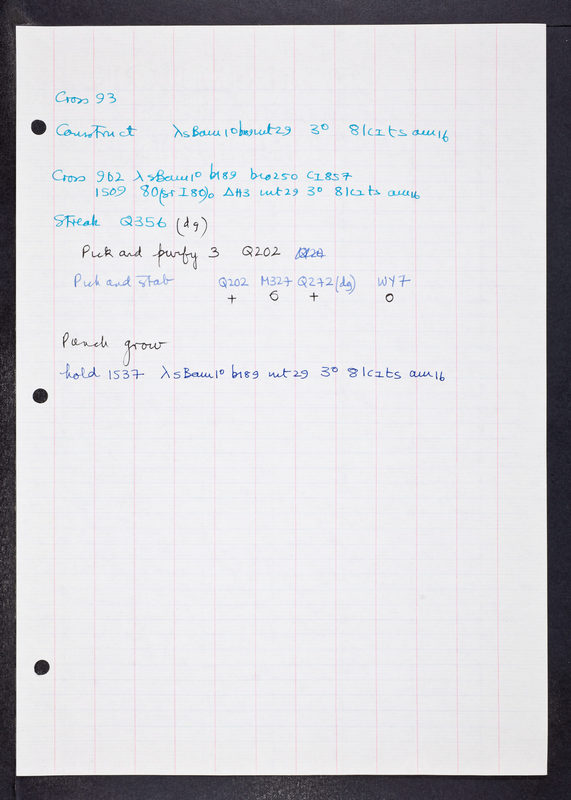 Cross 93
Construct λ sBam1° b189 nut29 3° 81cIts am16
Cross 962 λ sBam1° b189 bio250 cI857
1509 80(sr I 80)0 ΔH3 nut29 3° 81cIts am16
Streak Q356 (dg)
Pick and purify 3 Q202
Pick and stab Q202 M327 Q272(dg) WY7
+ O + O
Punch grow
hold 1537 λ sBam1° b189 nut29 3° 81cIts am16